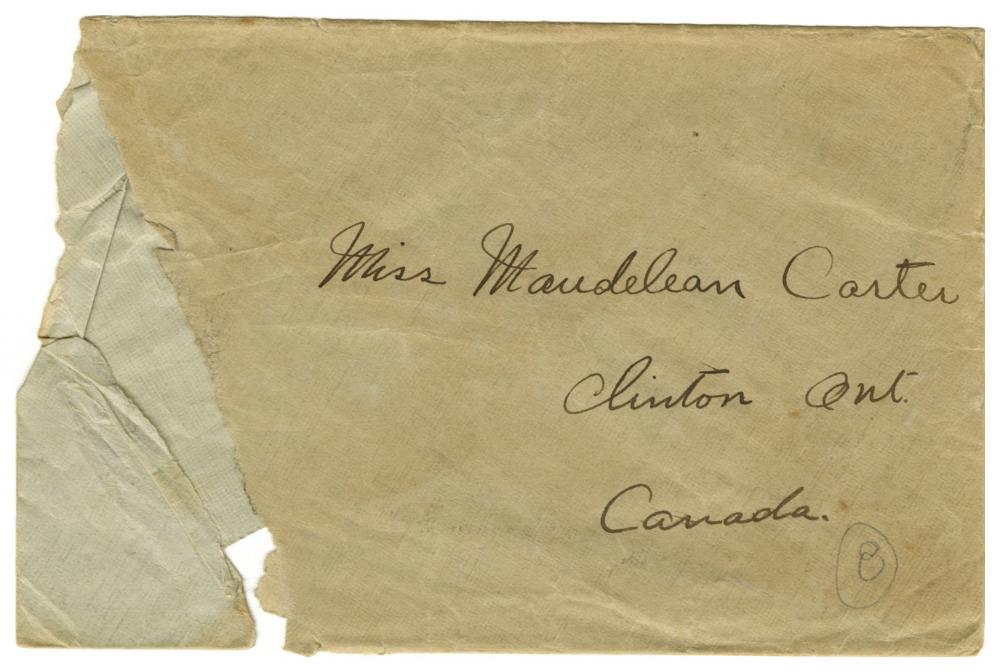 Miss Maudelean Carter
Clinton Ont.
Canada.
8